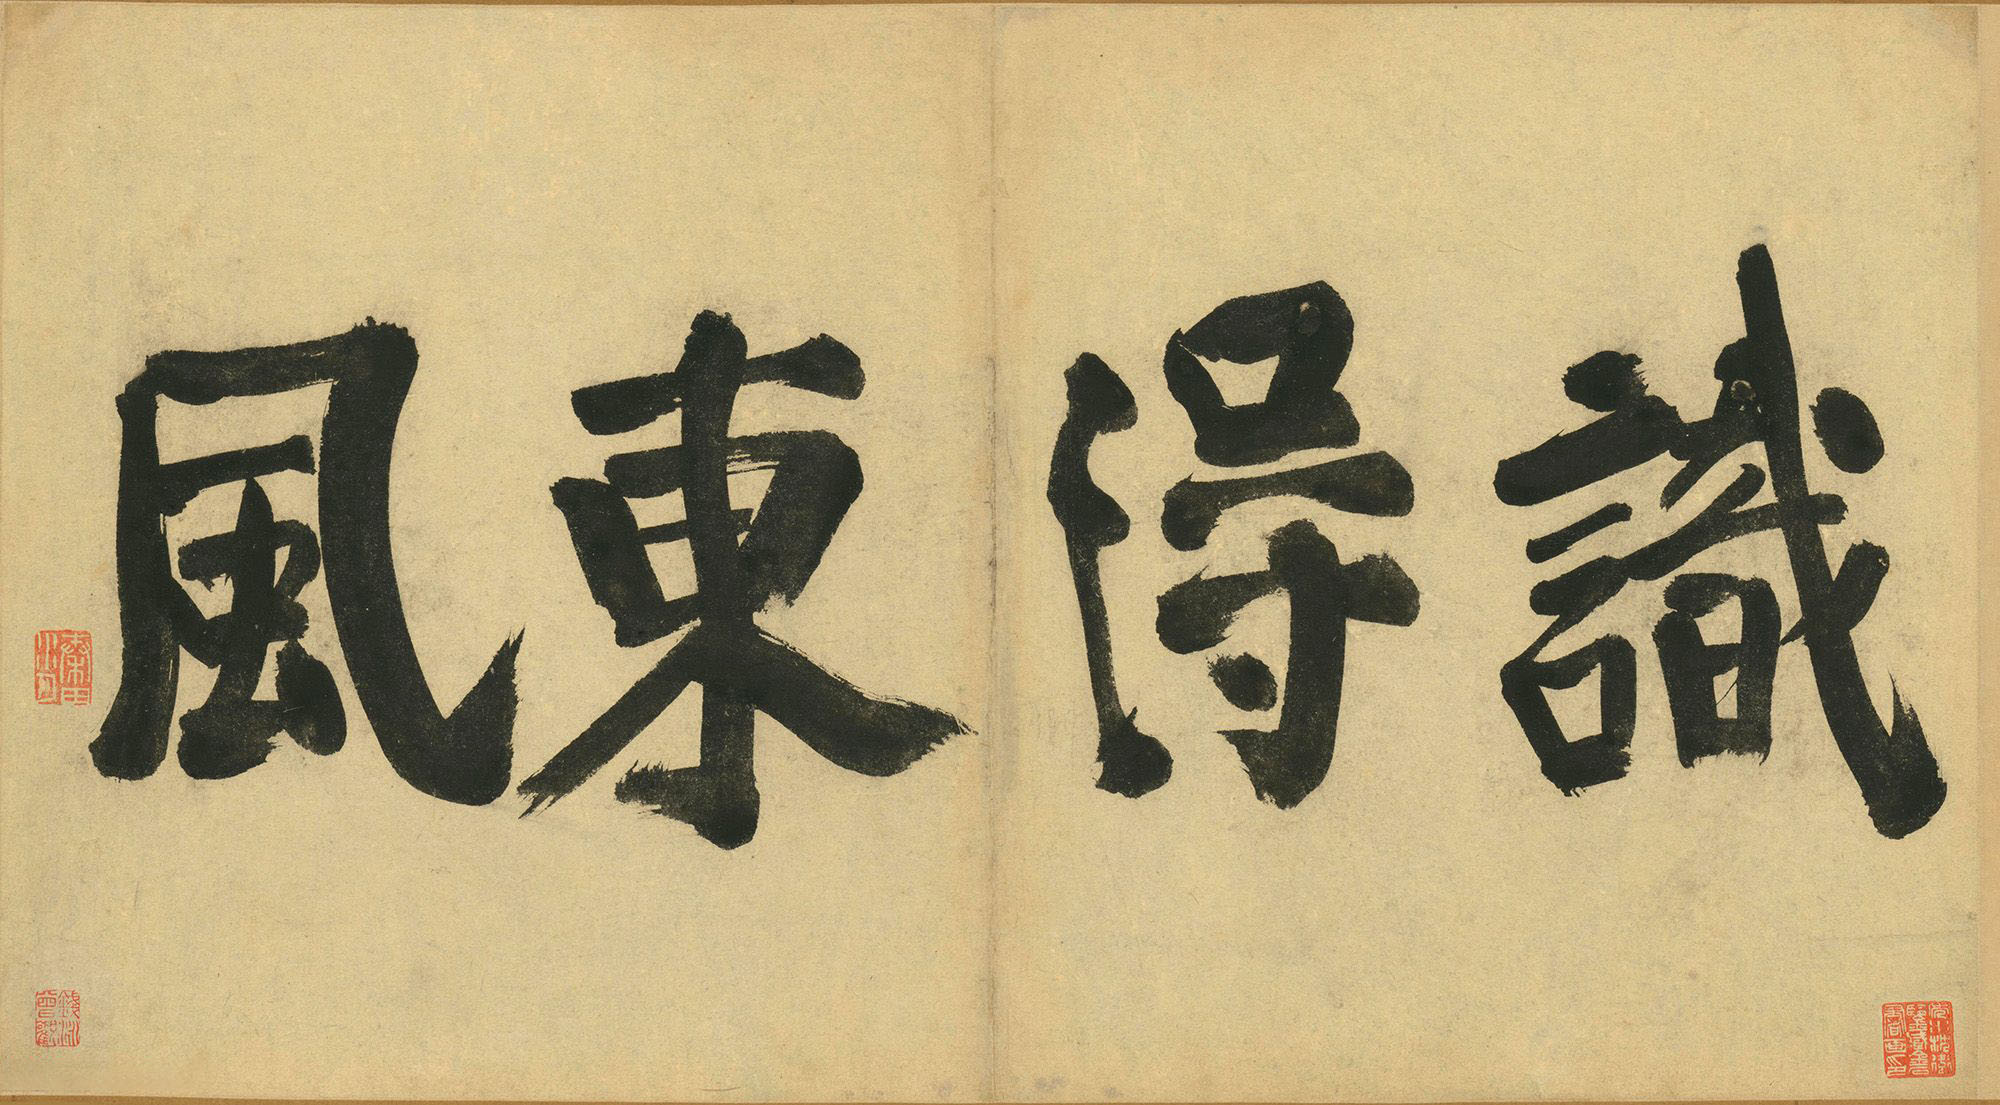 識得東風